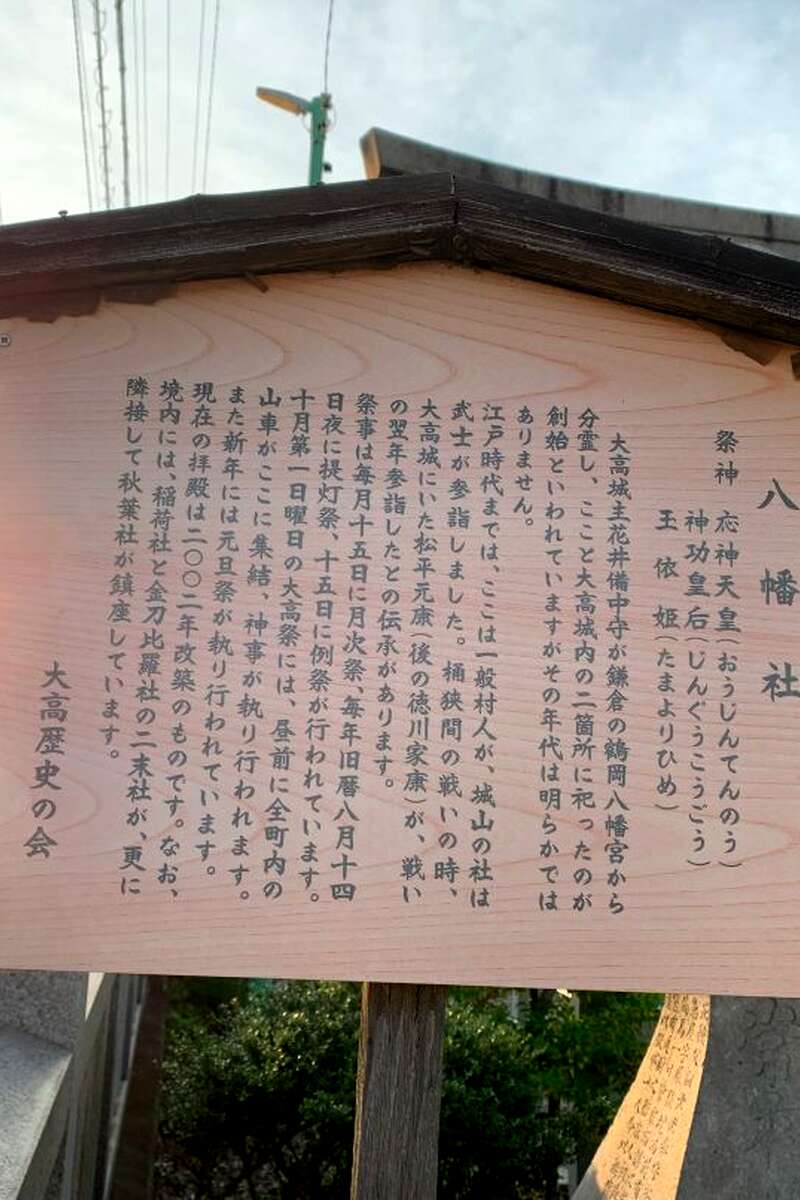 八幡社
祭神 応神天皇(おうじんてんのう)
神功皇后(じんぐうこうごう)
玉依姫(たまよりひめ)
大高城主花井備中守が鎌倉の鶴岡八幡宮から
分霊し、ここと大高城内の二箇所に祀ったのが
創始といわれていますがその年代は明らかでは
ありません。
江戸時代までは、ここは一般村人が、城山の社は
武士が参詣しました。桶狭間の戦いの時、
大高城にいた松平元康(後の徳川家康)が、戦い
の翌年参詣したとの伝承があります。
祭事は毎月十五日に月次祭、毎年旧暦八月十四
日夜に提灯祭、十五日に例祭が行われています。
十月第一日曜日の大高祭には、昼前に全町内の
山車がここに集結、神事が執り行われます。
また新年には元旦祭が執り行われています。
現在の拝殿は二〇〇二年改築のものです。なお、
境内には、稲荷社と金刀比羅社の二末社が、更に
隣接して秋葉社が鎮座しています。
大高歴史の会